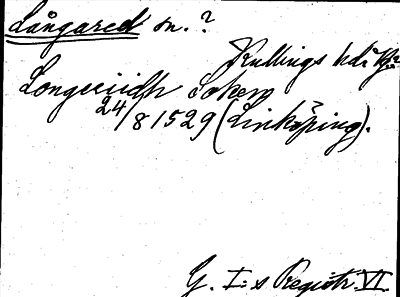 Långared sn. ?
Kullings hd.
Longeriidh Soken
24/8 1529 (Linköping).
G. I:s Registr. VI